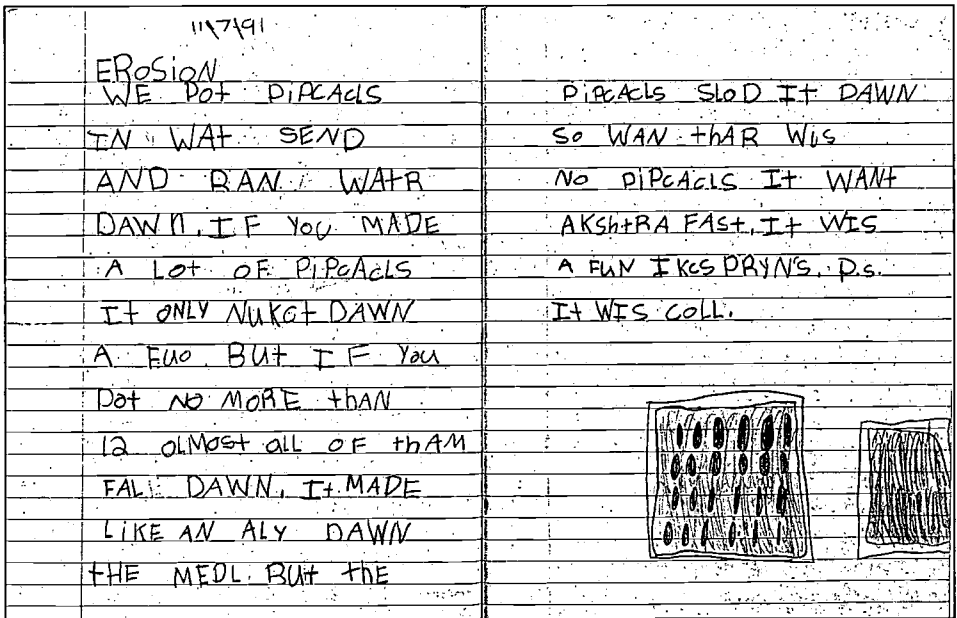 11\7\91
EROSION
WE POt PiPCAClS
IN WAt SEND
AND RAN WAtR
DAWN. IF YOU MADE
A LOt OF PiPCAClS
It ONLY NUKCt DAWN
A FUO. BUt IF YOU
POt NO MORE thAN
12 OLMOSt all OF thAM
FALL DAWN. It MADE
LiKE AN ALY DAWN
tHE MEDL. BUt thE
PiPCAClS SLOD It DAWN
SO WAN thAR WIS
NO PiPCAClS It WANt
AKShtRA FASt. It WIS
A FUN IKCSPRYNS. P.s.
It WIS COLL.